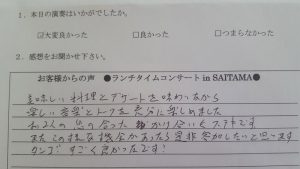 1. 本日の演奏はいかがでしたか。
☑大変良かった □良かった □つまらなかった
2. 感想をお聞かせ下さい。
お客様からの声 ●ランチタイムコンサート in SAITAMA●
美味しい料理とデザートを味わいながら
楽しい音楽とトークを充分に楽しめました
お2人の息の合った かけ合いもステキです
またこの様な機会があったら是非参加したいと思います
タンゴ すごく良かったです!